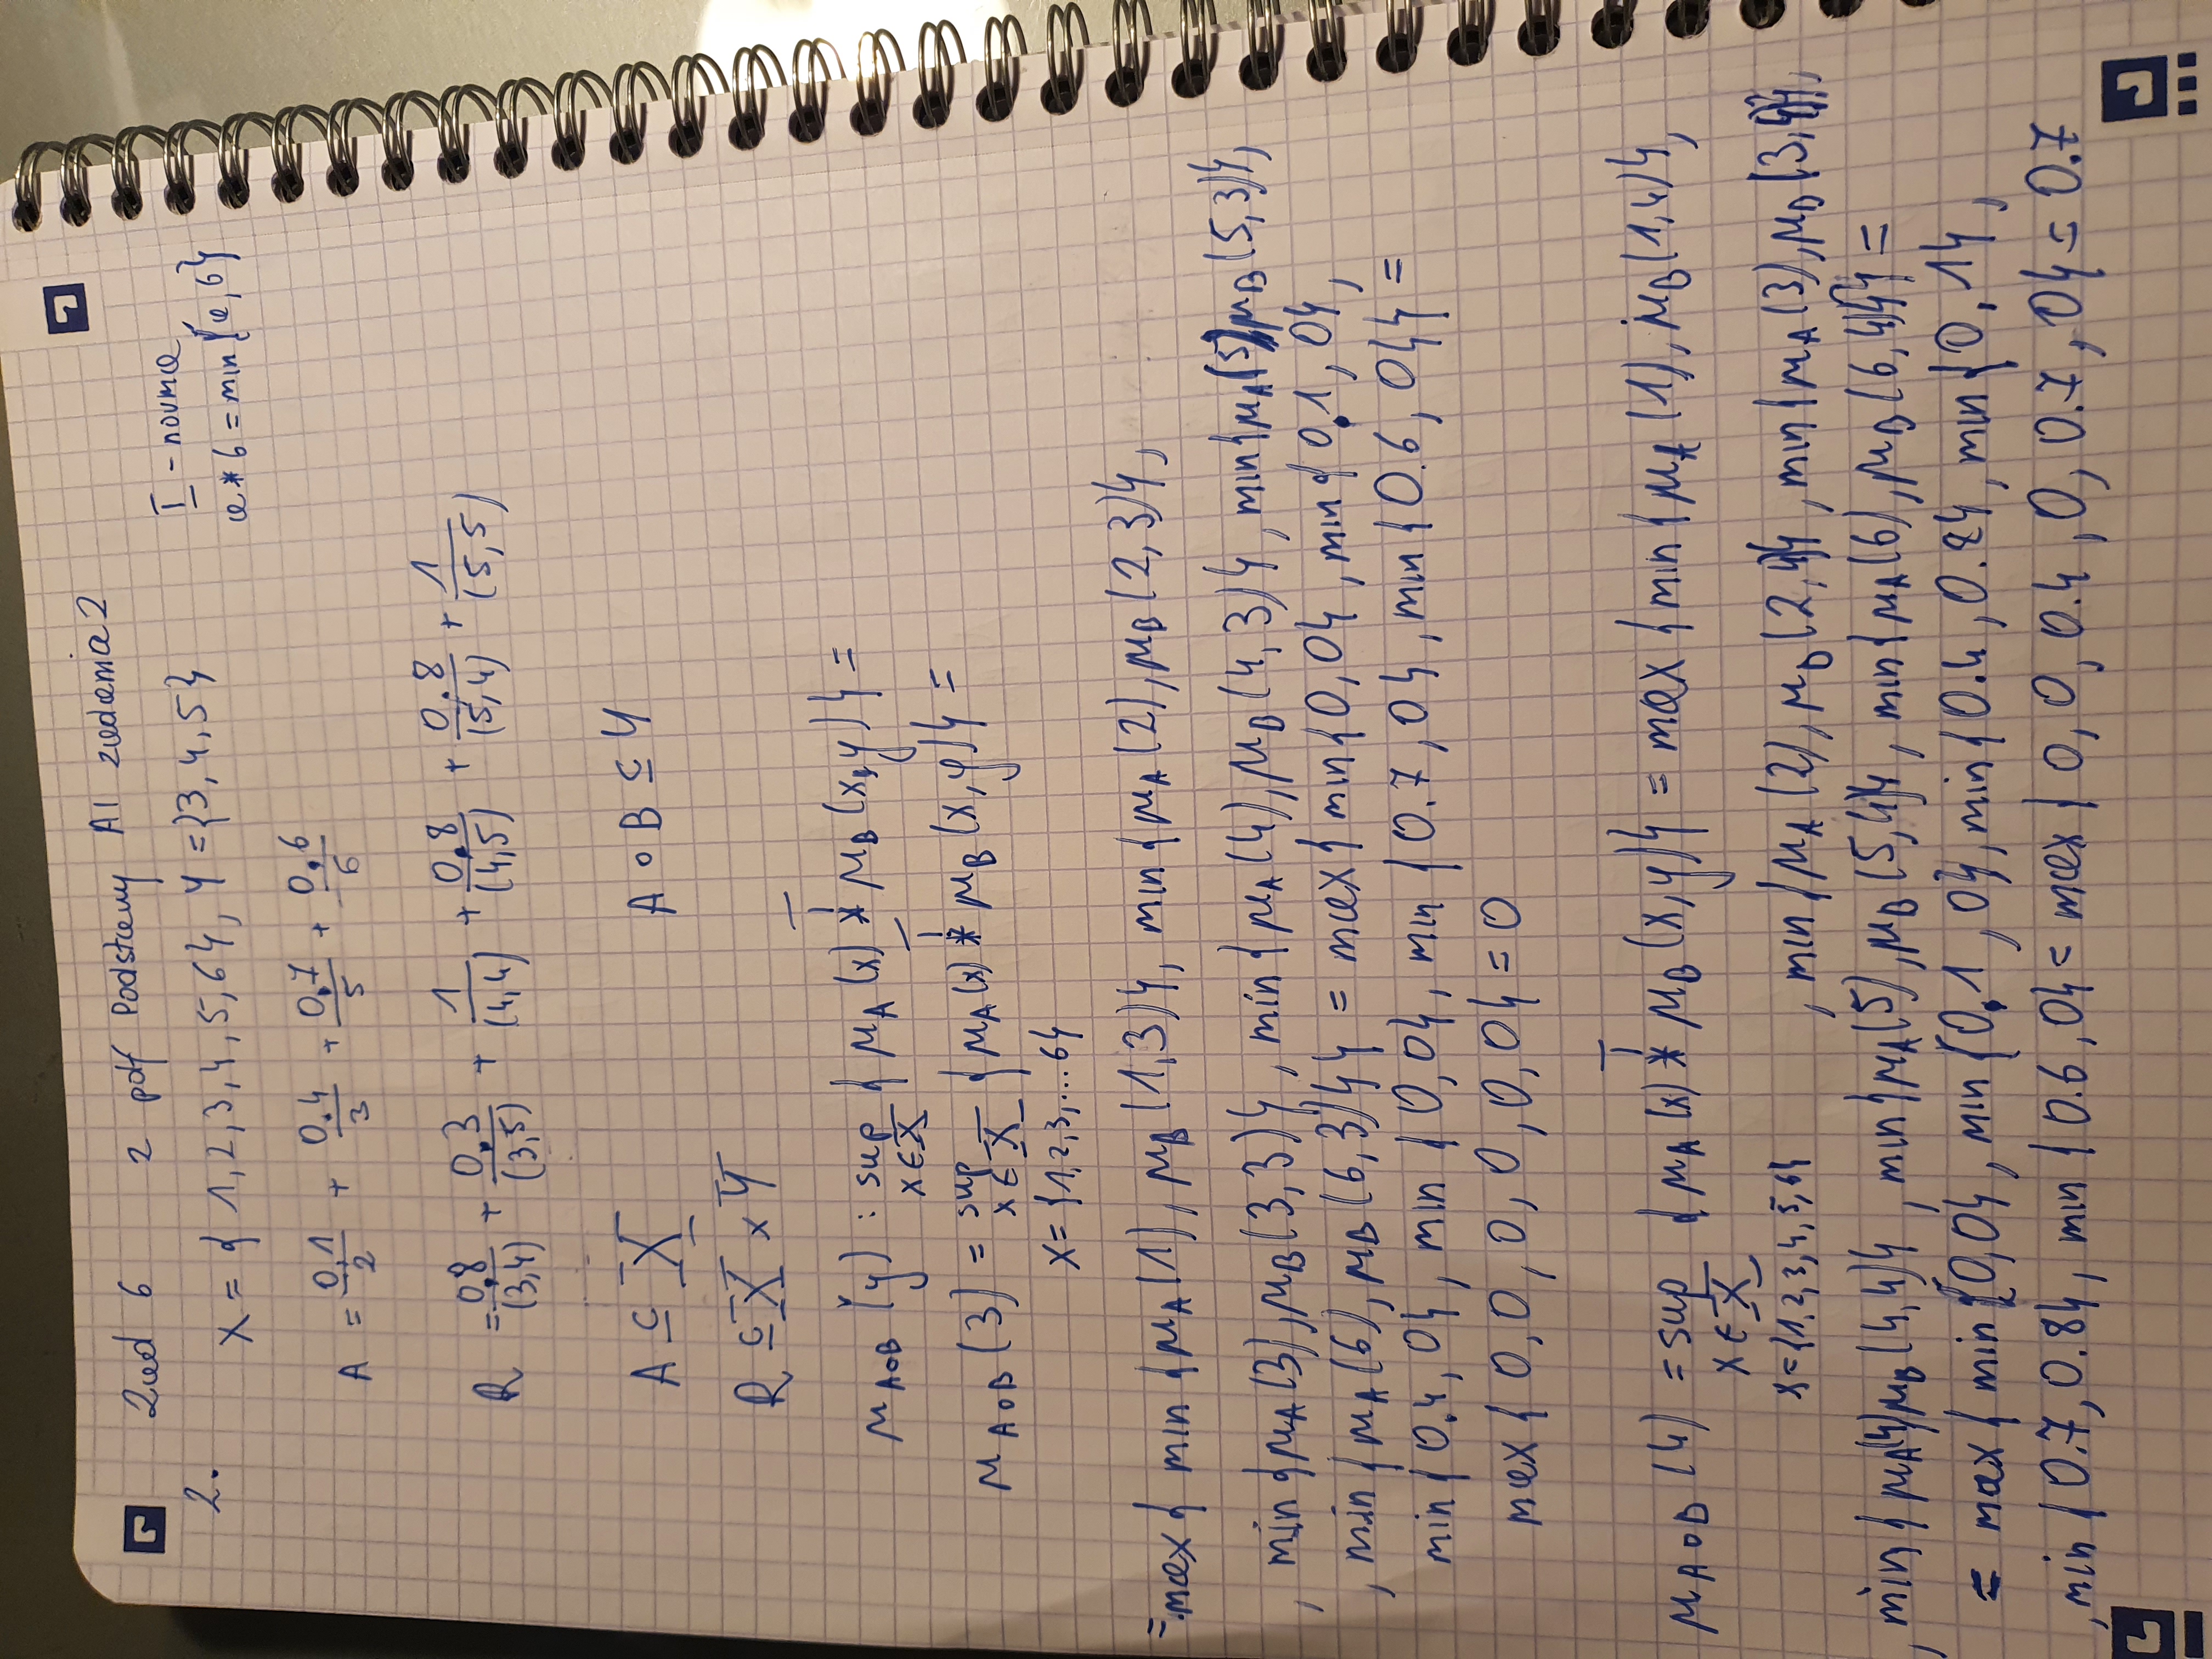 Zad 6 z pdf Podstawy AI zadania 2
2. X = {1,2,3,4,5,6}, Y = {3,4,5}
T - norma
a * b = min{a,b}
A = 0,1/2 + 0.4/3 + 0.7/5 + 0.6/6
R = 0.8/(3,4) + 0.3/(3,5) + 1/(4,4) + 0.8/(4,5) + 0.8/(5,4) + 1/(5,5)
A ⊆ X
A ∘ B ⊆ Y
R ⊆ X × Y
μ_A∘B (y) : sup x∈X { μ_A (x) *^T μ_B (x,y)} =
μ_A∘B (3) = sup x∈X { μ_A (x) *^T μ_B (x,y)} =
x = {1,2,3,...6}
= max{ min {μ_A (1), μ_B (1,3)}, min {μ_A (2), μ_B (2,3)},
, min {μ_A (3), μ_B (3,3)}, min {μ_A (4), μ_B (4,3)}, min{μ_A (5), μ_B (5,3)},
, min {μ_A (6), μ_B (6,3)}} = max {min {0,0}, min {0.1, 0},
min {0.4, 0}, min {0,0}, min {0.7, 0}, min {0.6, 0}} =
max { 0, 0, 0, 0, 0, 0} = 0
μ_A∘B (4) = sup x∈X { μ_A (x) *^T μ_B (x,y)} = max {min { μ_A (1), μ_B (1,4)},
x={1,2,3,4,5,6}
, min {μ_A (2), μ_B (2,4)}, min {μ_A (3), μ_B (3,4)},
, min { μ_A (4) μ_B (4,4)}, min {μ_A (5), μ_B (5,4)}, min {μ_A (6), μ_B (6,4)}} =
= max { min {0,0}, min {0.1, 0}, min {0.4, 0.8}, min {0, 1},
, min {0.7, 0.8}, min {0.6, 0} = max { 0, 0, 0.4, 0, 0.7, 0} = 0.7